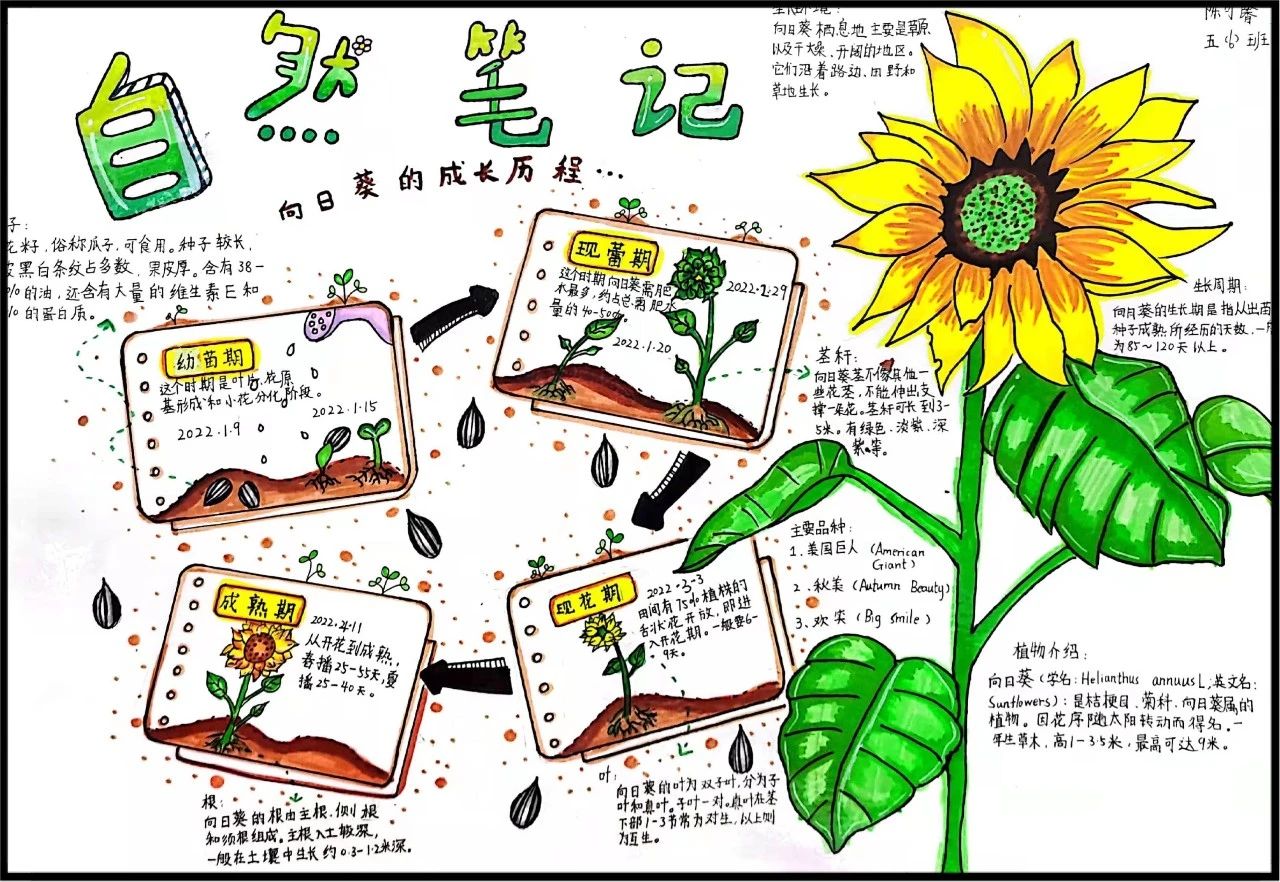 自然笔记
向日葵的成长历程…
向日葵栖息地主要是草原
以及干燥、开阔的地区。
它们沿着路边、田野和
草地生长。
五(6)班
子:
花籽,俗称瓜子,可食用。种子较长,
皮黑白条纹占多数,果皮厚。含有38-
的油,还含有大量的维生素E和
的蛋白质。
幼苗期
这个时期是叶片、花原
基形成和小花分化阶段。
2022.1.15
2022.1.9
现蕾期
这个时期向日葵需肥
水最多,约占总需肥水
量的40-50%。
2022.1.29
2022.1.20
茎秆:
向日葵茎不像其他一
些花茎,不能伸出支
撑一朵花。茎秆可长到3-
5米。有绿色、淡紫、深
紫等。
生长周期:
向日葵的生长期是指从出苗
种子成熟所经历的天数,一
为85~120天以上。
主要品种:
1.美国巨人(American
Giant)
2.秋美(Autumn Beauty)
3.欢笑(Big smile)
现花期
2022.2.3
田间有75%植株的
舌状花开放,即进
入开花期。一般要6-
9天。
成熟期
2022.4.11
从开花到成熟,
春播25-55天,夏
播25-40天。
植物介绍:
向日葵(学名:Helianthus annuus L;英文名:
Sunflowers):是桔梗目、菊科、向日葵属的
植物。因花序随太阳转动而得名。一
年生草木,高1-3.5米,最高可达9米。
叶:
向日葵的叶为双子叶,分为子
叶和真叶。子叶一对。真叶在茎
下部1-3节常为对生,以上则
为互生。
根:
向日葵的根由主根、侧根
和须根组成。主根入土较深,
一般在土壤中生长约0.3-1.2米深。